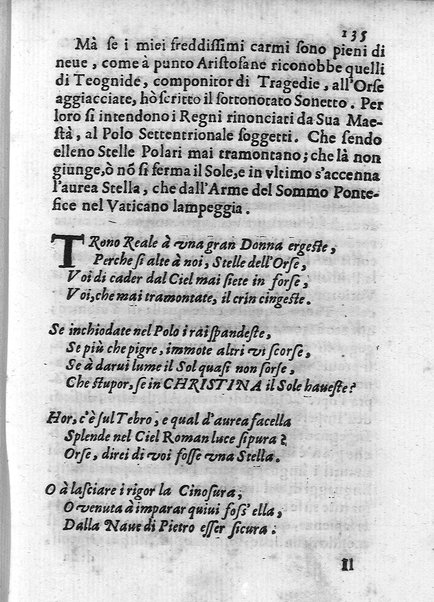 135
Mà se i miei freddissimi carmi sono pieni di
neue, come à punto Aristofane riconobbe quelli
di Teognide, componitor di Tragedie, all'Orse
aggiacciate, hò scritto il sottonotato Sonetto. Per
loro si intendono i Regni rinonciati da Sua Mae-
stà, al Polo Settentrionale soggetti. Che sendo
elleno Stelle Polari mai tramontano; che là non
giunge, ò nó si ferma il Sole, e in vltimo s'accenna
l'aurea Stella, che dall'Arme del Sommo Ponte-
fice nel Vaticano lampeggia.
TRono Reale à vna gran Donna ergeste,
Perche sì alte à noi, Stelle dell'Orse,
Voi di cader dal Ciel mai siete in forse,
Voi, che mai tramontate, il crin cingeste.
Se inchiodate nel Polo i rai spandeste,
Se più che pigre, immote altri vi scorse,
Se à darui lume il Sol quasi non sorse,
Che stupor, se in CHRISTINA il Sole haueste?
Hor, c'è sul Tebro, e qual d'aurea facella
Splende nel Ciel Roman luce sì pura?
Orse, direi di voi fosse vna Stella.
O à lasciare i rigor la Cinosura,
O venuta à imparar quiui foss' ella,
Dalla Naue di Pietro esser sicura.
Il